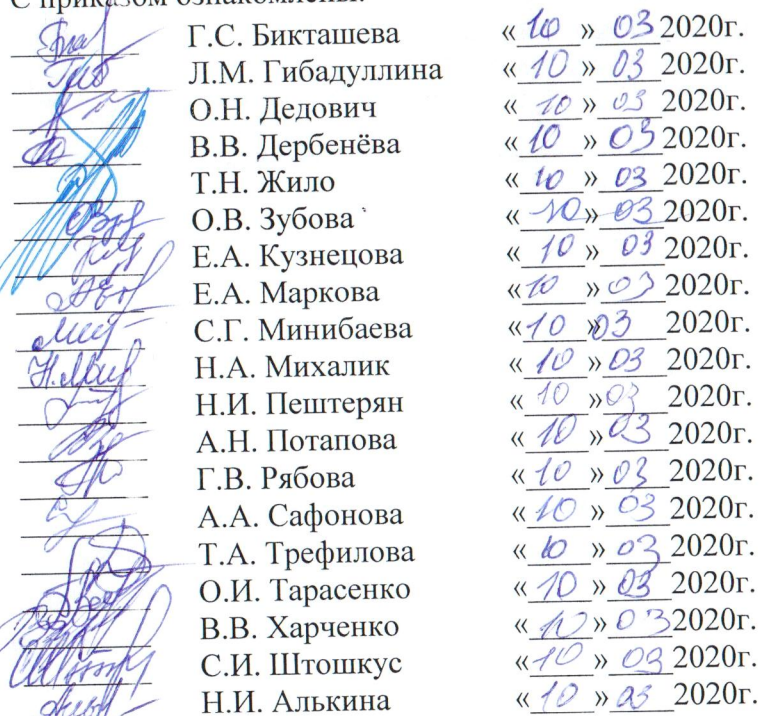 С приказом ознакомлены:
Г.С. Бикташева « 10 » 03 2020г.
Л.М. Гибадуллина « 10 » 03 2020г.
О.Н. Дедович « 10 » 03 2020г.
В.В. Дербенёва « 10 » 03 2020г.
Т.Н. Жило « 10 » 03 2020г.
О.В. Зубова « 10 » 03 2020г.
Е.А. Кузнецова « 10 » 03 2020г.
Е.А. Маркова « 10 » 03 2020г.
С.Г. Минибаева « 10 » 03 2020г.
Н.А. Михалик « 10 » 03 2020г.
Н.И. Пештерян « 10 » 03 2020г.
А.Н. Потапова « 10 » 03 2020г.
Г.В. Рябова « 10 » 03 2020г.
А.А. Сафонова « 10 » 03 2020г.
Т.А. Трефилова « 10 » 03 2020г.
О.И. Тарасенко « 10 » 03 2020г.
В.В. Харченко « 10 » 03 2020г.
С.И. Штошкус « 10 » 03 2020г.
Н.И. Алькина « 10 » 03 2020г.